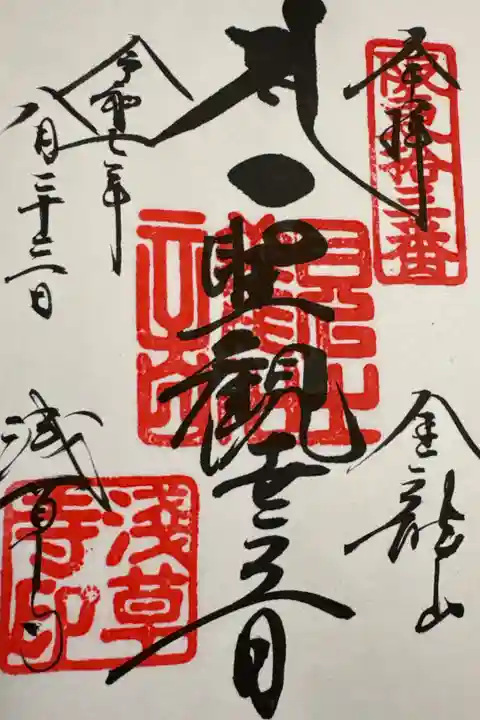 奉拝
坂東拾三番
金龍山
聖観世音
令和七年
八月二十二日
浅草寺
淺草寺印